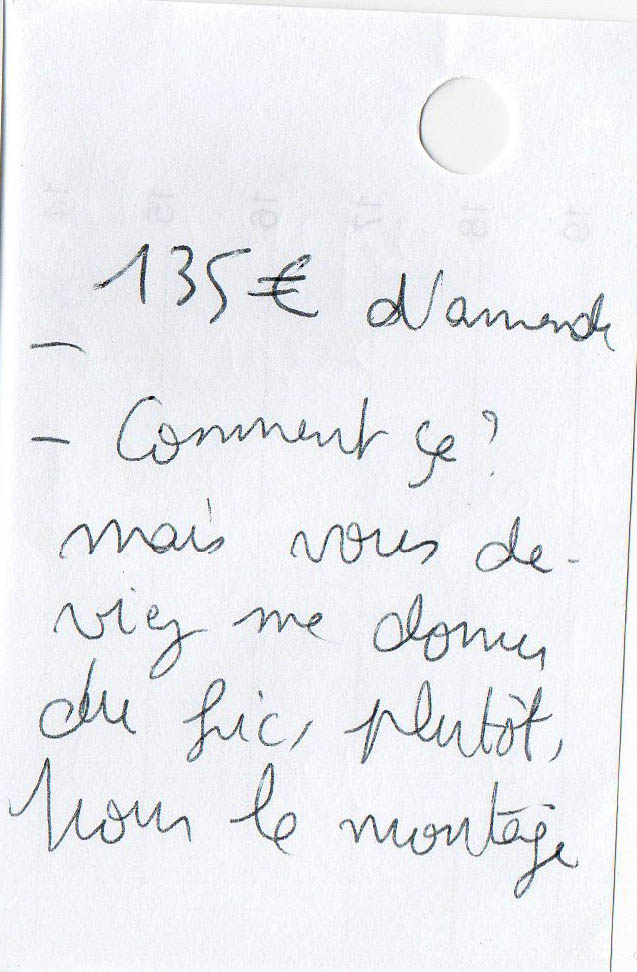 135 € d'amende
–
– Comment ça ?
mais vous de-
viez me donner
du fric, plutôt,
pour le montage
14 15 16 17 18 19